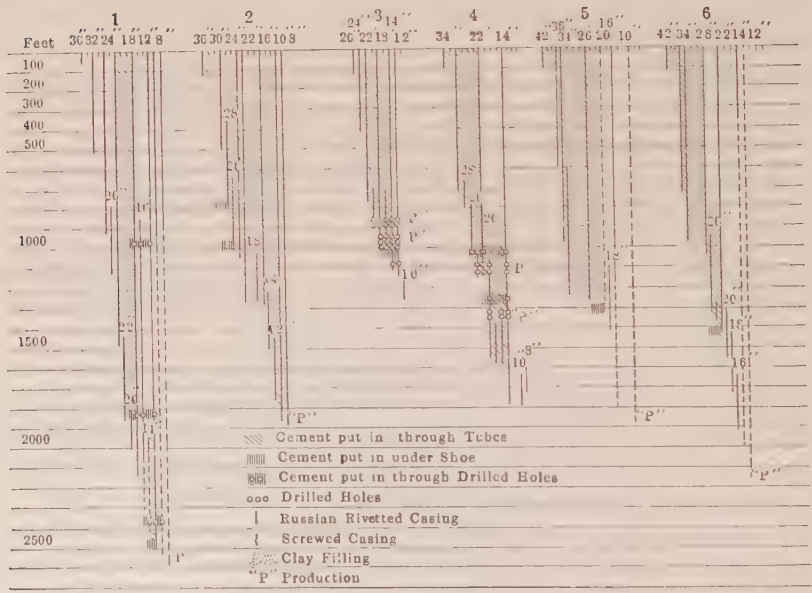 1 2 3 4 5 6
Feet
36" 32" 24" 18" 12" 8"
36" 30" 24" 22" 16" 10" 8"
24" 14"
26" 22" 18" 12"
34" 22" 14"
36" 16"
42" 34" 26" 20" 10"
42" 34" 28" 22" 14" 12"
100
200
300
400
500
1000
1500
2000
2500
20"
16"
22"
20
18
20
"P"
"P"
10"
P
"P"
"8"
10
20"
20"
18"
16"
"P"
"P"
"P"
P
Cement put in through Tubes
Cement put in under Shoe
Cement put in through Drilled Holes
ooo Drilled Holes
Russian Rivetted Casing
Screwed Casing
Clay Filling
"P" Production